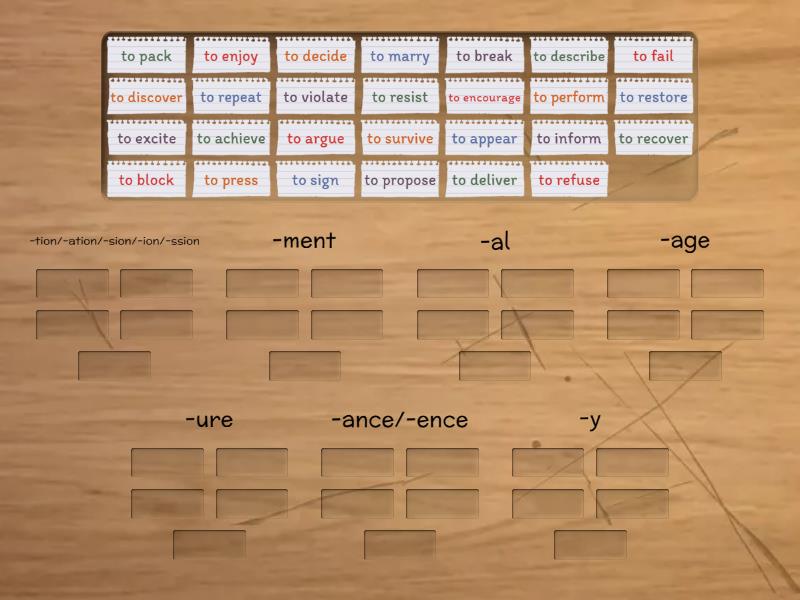 to pack to enjoy to decide to marry to break to describe to fail
to discover to repeat to violate to resist to encourage to perform to restore
to excite to achieve to argue to survive to appear to inform to recover
to block to press to sign to propose to deliver to refuse
-tion/-ation/-sion/-ion/-ssion -ment -al -age
-ure -ance/-ence -y